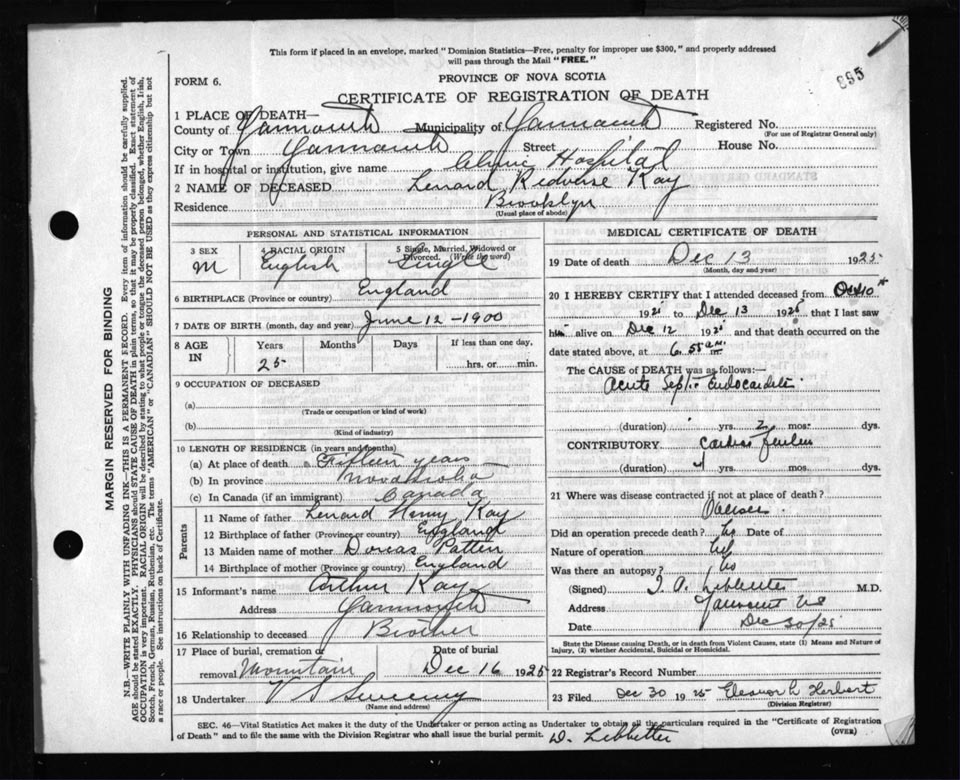 This form if placed in an envelope, marked "Dominion Statistics—Free, penalty for improper use $300," and properly addressed
will pass through the Mail "FREE."
895
FORM 6.
PROVINCE OF NOVA SCOTIA
CERTIFICATE OF REGISTRATION OF DEATH
1 PLACE OF DEATH—
County of Yarmouth Municipality of Yarmouth Registered No.
(For use of Registrar General only)
City or Town Yarmouth Street House No.
If in hospital or institution, give name Clinic Hospital
2 NAME OF DECEASED Lenard Redverse Kay
Residence Brooklyn
(Usual place of abode)
PERSONAL AND STATISTICAL INFORMATION
3 SEX 4 RACIAL ORIGIN 5 Single, Married, Widowed or Divorced. (Write the word)
M English Single
6 BIRTHPLACE (Province or country) England
7 DATE OF BIRTH (month, day and year) June 12-1900
8 AGE IN Years Months Days If less than one day,
25 hrs. or min.
9 OCCUPATION OF DECEASED
(a)
(Trade or occupation or kind of work)
(b)
(Kind of industry)
10 LENGTH OF RESIDENCE (in years and months)
(a) At place of death Fifteen years
(b) In province Nova Scotia
(c) In Canada (if an immigrant) Canada
Parents
11 Name of father Lenard Henry Kay
12 Birthplace of father (Province or country) England
13 Maiden name of mother Dorcas Patten
14 Birthplace of mother (Province or country) England
15 Informant's name Arthur Kay
Address Yarmouth
16 Relationship to deceased Brother
17 Place of burial, cremation or removal Mountain Date of burial Dec 16 1925
18 Undertaker V S Sweeny
(Name and address)
MEDICAL CERTIFICATE OF DEATH
19 Date of death Dec 13 1925
(Month, day and year)
20 I HEREBY CERTIFY that I attended deceased from Oct 10th
1925 to Dec 13 1925 that I last saw
him alive on Dec 12 1925 and that death occurred on the
date stated above, at 6.55 a.m.
The CAUSE OF DEATH was as follows:—
Acute Septic Endocarditis
(duration) yrs. 2 mos. dys.
CONTRIBUTORY
(duration) yrs. mos. dys.
21 Where was disease contracted if not at place of death?
Did an operation precede death? No Date of
Nature of operation
Was there an autopsy? No
(Signed) Lebbetter M.D.
Address Yarmouth NS
Date Dec 30/25
State the Disease causing Death, or in death from Violent Causes, state (1) Means and Nature of
Injury, (2) whether Accidental, Suicidal or Homicidal.
22 Registrar's Record Number
23 Filed Dec 30 1925 Eleanor L Herbert
(Division Registrar)
SEC. 46—Vital Statistics Act makes it the duty of the Undertaker or person acting as Undertaker to obtain all the particulars required in the "Certificate of Registration
of Death" and to file the same with the Division Registrar who shall issue the burial permit.
D. Lebbetter
(OVER)
MARGIN RESERVED FOR BINDING
N.B.—WRITE PLAINLY WITH UNFADING INK—THIS IS A PERMANENT RECORD. Every item of information should be carefully supplied.
AGE should be stated EXACTLY. PHYSICIANS should STATE CAUSE OF DEATH in plain terms, so that it may be properly classified. Exact statement of
OCCUPATION is very important. RACIAL ORIGIN will be described by stating to what people or tongue the deceased person belonged, whether English, Irish,
Scotch, French, German, Russian, Ruthenian, etc. The terms "AMERICAN" or "CANADIAN" SHOULD NOT BE USED as they express citizenship but not
a race or people. See instructions on back of Certificate.